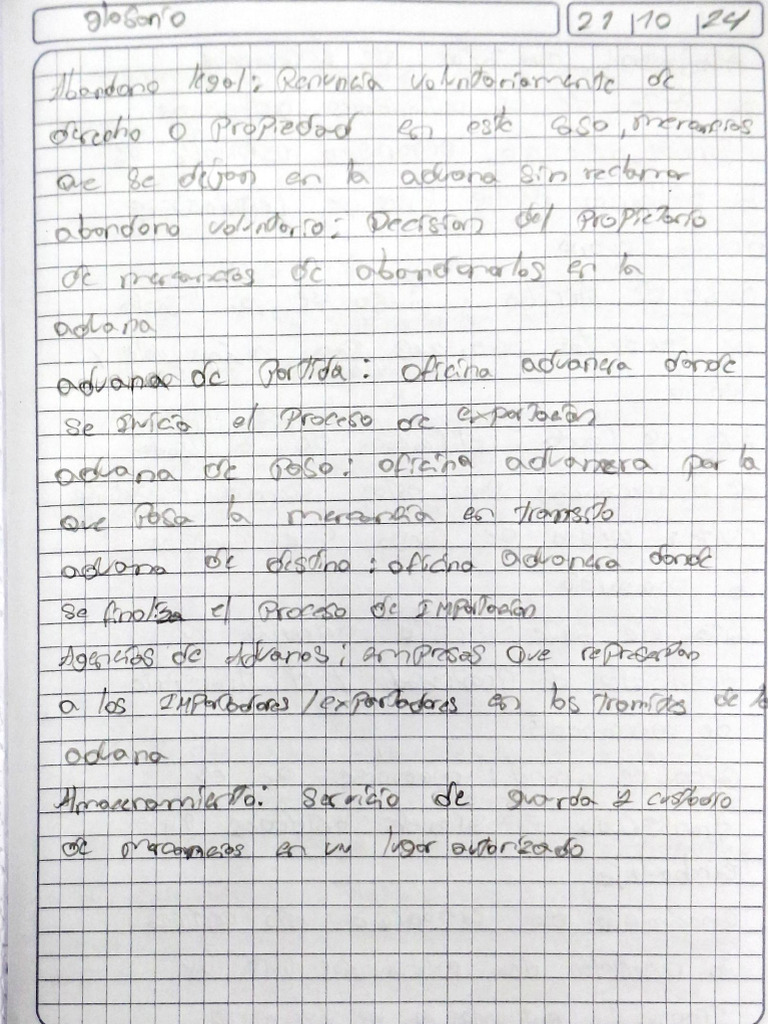 glosario
21 | 10 | 24
Abandono legal: Renuncia voluntariamente de
derecho o propiedad en este caso, mercancias
que se dejan en la aduana sin reclamar
abandono voluntario: Decision del propietario
de mercancias de abandonarlos en la
aduana
aduana de Partida: oficina aduanera donde
se inicia el proceso de exportación
aduana de Paso: oficina aduanera por la
que Pasa la mercancia en transito
aduana de destino: oficina aduanera donde
se finaliza el proceso de importación
Agencias de Aduanas: empresas que representan
a los Importadores / exportadores en los tramites de la
aduana
Almacenamiento: servicio de guarda y custodio
de mercancias en un lugar autorizado